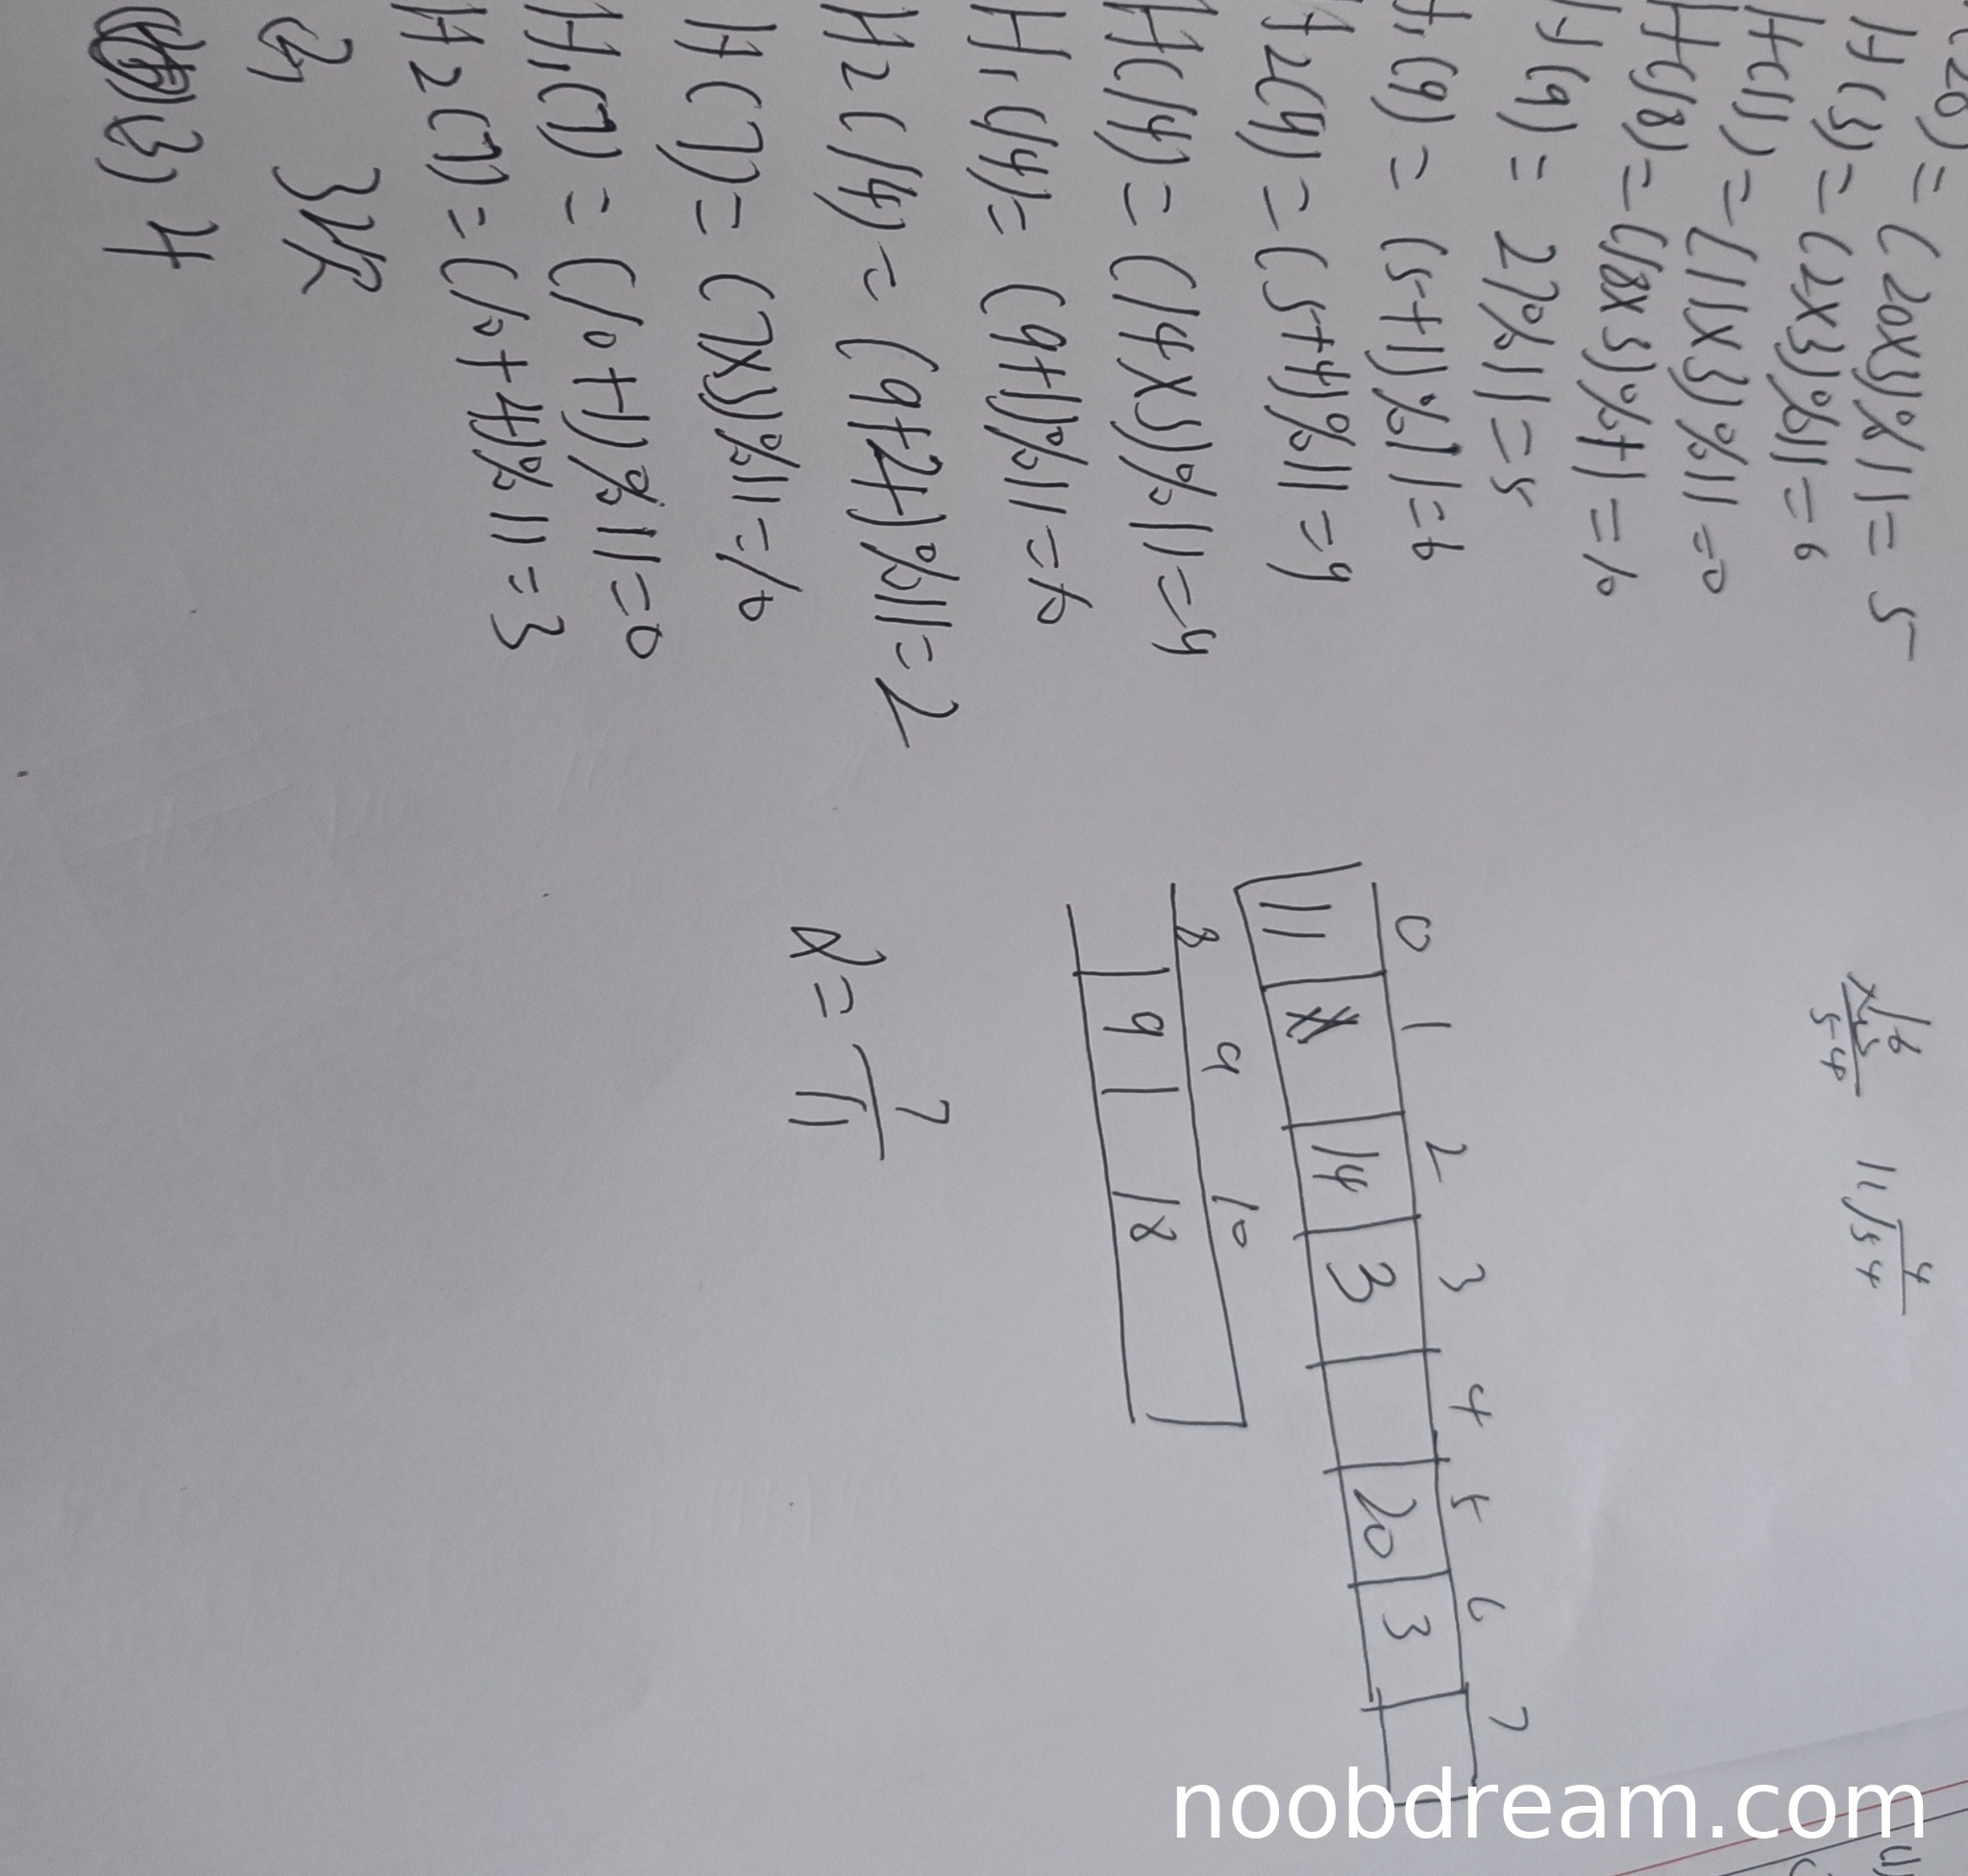 (20) = (20x3)%11 = 5
H(3) = (2x3)%11 = 6
H(11) = (11x3)%11 = 0
H(18) = (18x3)%+1 = 10
H(9) = 27%11 = 5
H1(9) = (5+1)%11 = 6
H2(9) = (5+4)%11 = 9
H(14) = (14x3)%11 = 9
H1(14) = (9+1)%11 = 10
H2(14) = (9+24)%11 = 2
H(7) = (7x3)%11 = 10
H1(7) = (10+1)%11 = 0
H2(7) = (10+4)%11 = 3
(2) 3次
(3) 4
5-4
11 54 4
0 1 2 3 4 5 6 7
11 14 3 20 3
8 9 10
9 18
α = 7/11
noobdream.com